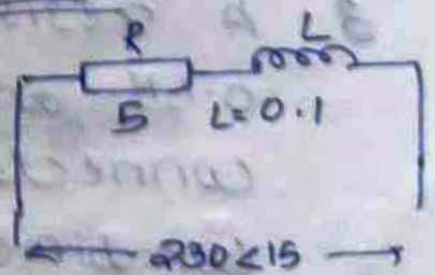 R L
5 L=0.1
230<15